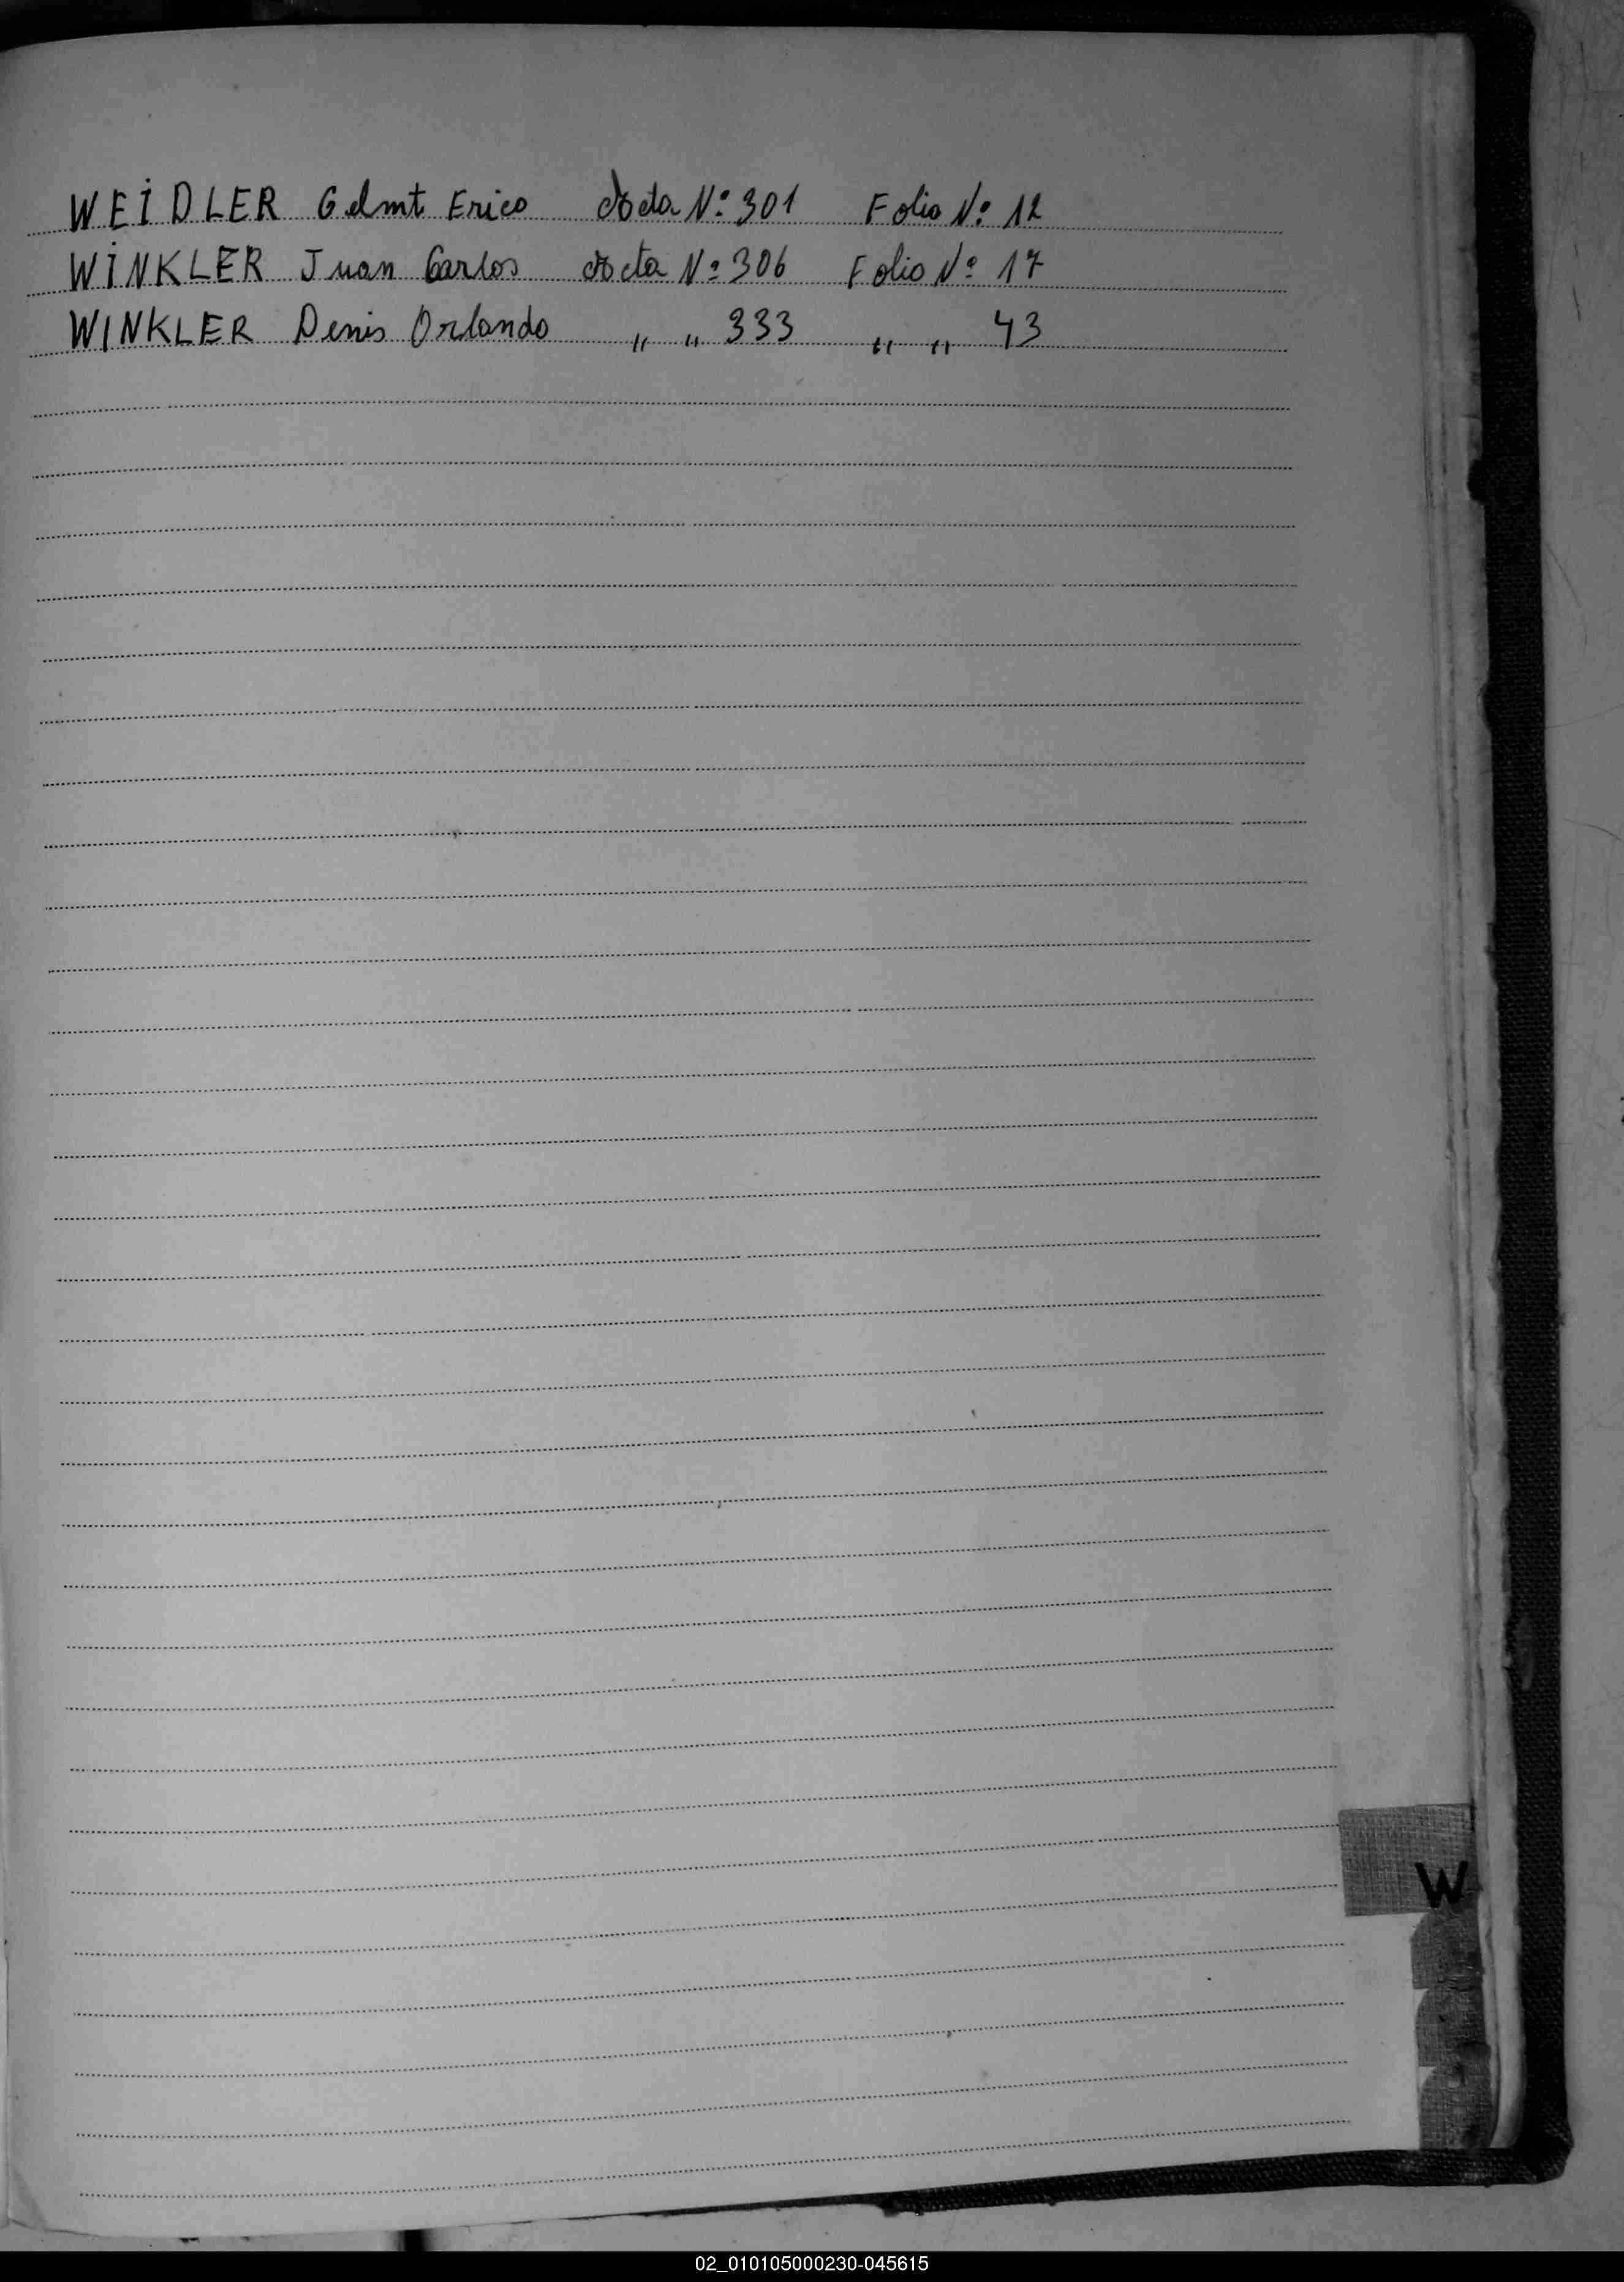 WEIDLER Gelmt Erico Acta Nº 301 Folio Nº 12
WINKLER Juan Carlos Acta Nº 306 Folio Nº 17
WINKLER Denis Orlando " " 333 " " 43
W
02_010105000230-045615